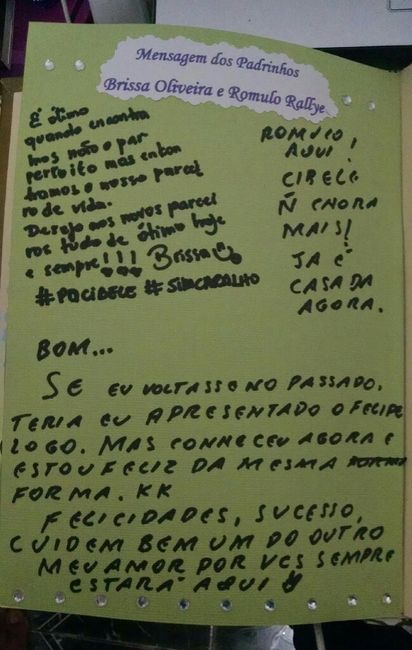 Mensagem dos Padrinhos
Brissa Oliveira e Romulo Rallye
É ótimo
quando encontra
mos não o par
perfeito mas encon
tramos o nosso parcei
ro de vida.
Desejo aos novos parcei
ros tudo de ótimo hoje
e sempre!!! Brissa
#POCIBELE #SIMCARALHO
ROMULO
AQUI!
CIBELE
Ñ CHORA
MAIS!
JA É
CASADA
AGORA.
BOM...
SE EU VOLTASSE NO PASSADO,
TERIA EU APRESENTADO O FELIPE
LOGO. MAS CONHECEU AGORA E
ESTOU FELIZ DA MESMA
FORMA. KK
FELICIDADES, SUCESSO,
CUIDEM BEM UM DO OUTRO
MEU AMOR POR VCS SEMPRE
ESTARÁ AQUI